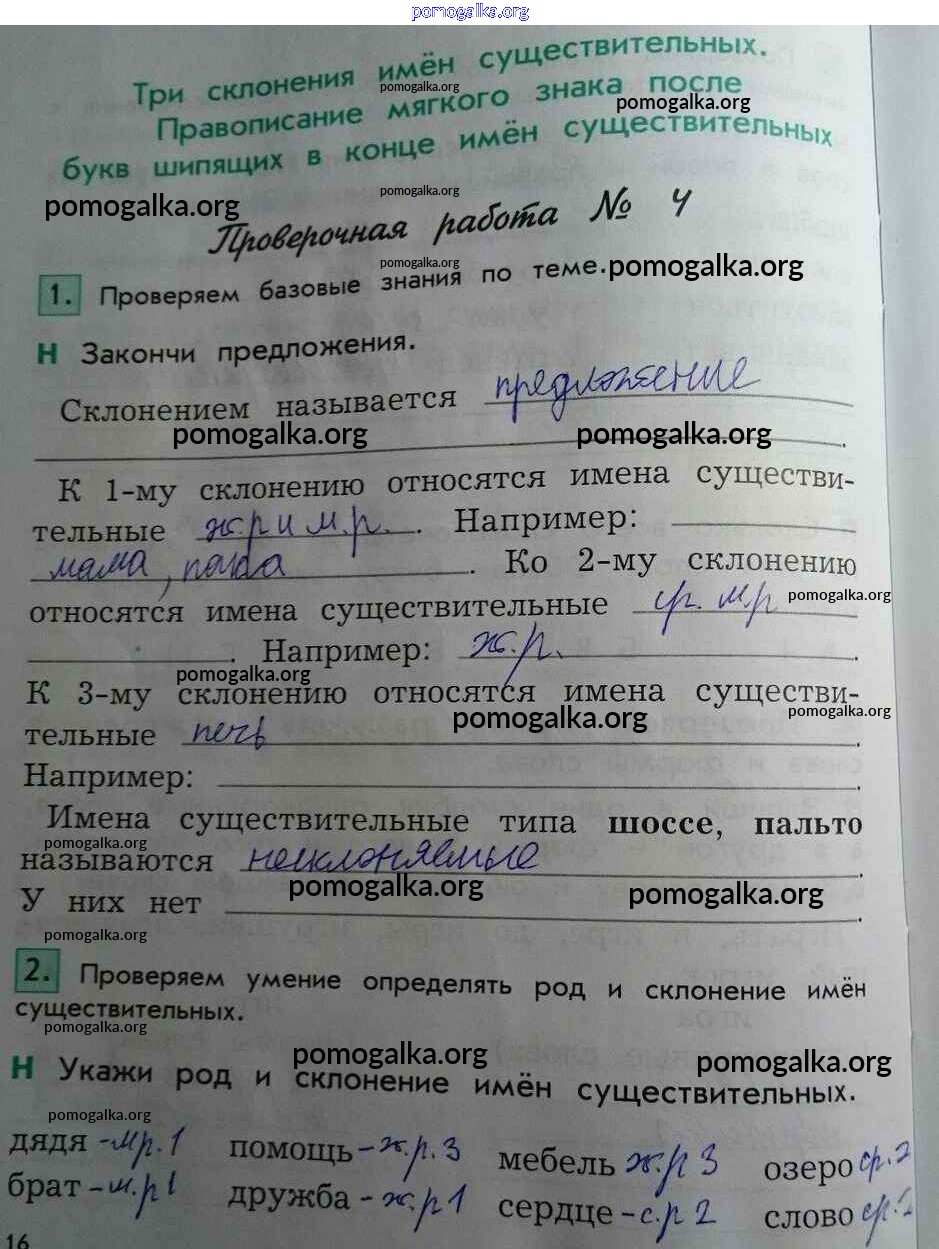 pomogalka.org
Три склонения имён существительных.
pomogalka.org
Правописание мягкого знака после
pomogalka.org
букв шипящих в конце имён существительных
pomogalka.org
pomogalka.org
Проверочная работа № 4
pomogalka.org
1. Проверяем базовые знания по теме. pomogalka.org
Н Закончи предложения.
Склонением называется предложение
pomogalka.org pomogalka.org
.
К 1-му склонению относятся имена существи-
тельные ж.р и м.р. . Например:
мама, папа . Ко 2-му склонению
относятся имена существительные ср. м.р pomogalka.org
. Например: ж.р. .
pomogalka.org
К 3-му склонению относятся имена существи-
pomogalka.org pomogalka.org
тельные печь .
Например: .
Имена существительные типа шоссе, пальто
pomogalka.org
называются несклоняемые .
pomogalka.org pomogalka.org
У них нет .
pomogalka.org
2. Проверяем умение определять род и склонение имён
существительных.
pomogalka.org
pomogalka.org pomogalka.org
Н Укажи род и склонение имён существительных.
pomogalka.org
дядя - м р. 1 помощь - ж.р. 3 мебель ж.р 3 озеро ср. 2
брат - м.р 1 дружба - ж.р 1 сердце - с.р 2 слово ср. 2
16